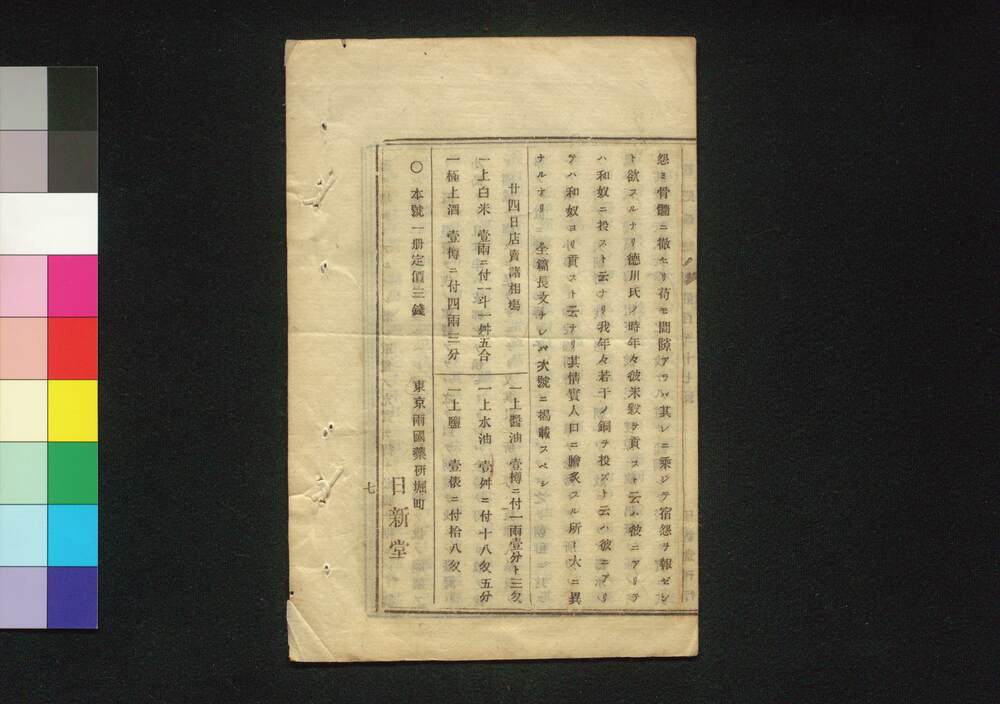 怨ミ骨髓ニ徹セリ苟モ間隙アラバ其レニ乘ジテ宿怨ヲ報ゼン
ト欲スルナリ德川氏ノ時年々彼米穀ヲ貢スト云ハ彼ニアリテ
ハ和奴ニ投スト云ナリ我年々若干ノ銅ヲ投スト云ハ彼ニアリ
テハ和奴ヨリ貢スト云ナリ其情實人口ニ膾炙スル所ト大ニ異
ナルナリ 全篇長文ナレバ次號ニ揭載スベシ
廿四日店賣諸相塲
一上醬油 壹樽ニ付一兩壹分ト三匁
一上白米 壹兩ニ付一斗一舛五合
一上水油 壹舛ニ付十八匁五分
一極上酒 壹樽ニ付四兩三分
一上鹽 壹俵ニ付拾八匁
〇本號一册定價三錢
東京兩國藥硏堀町
日新堂
七